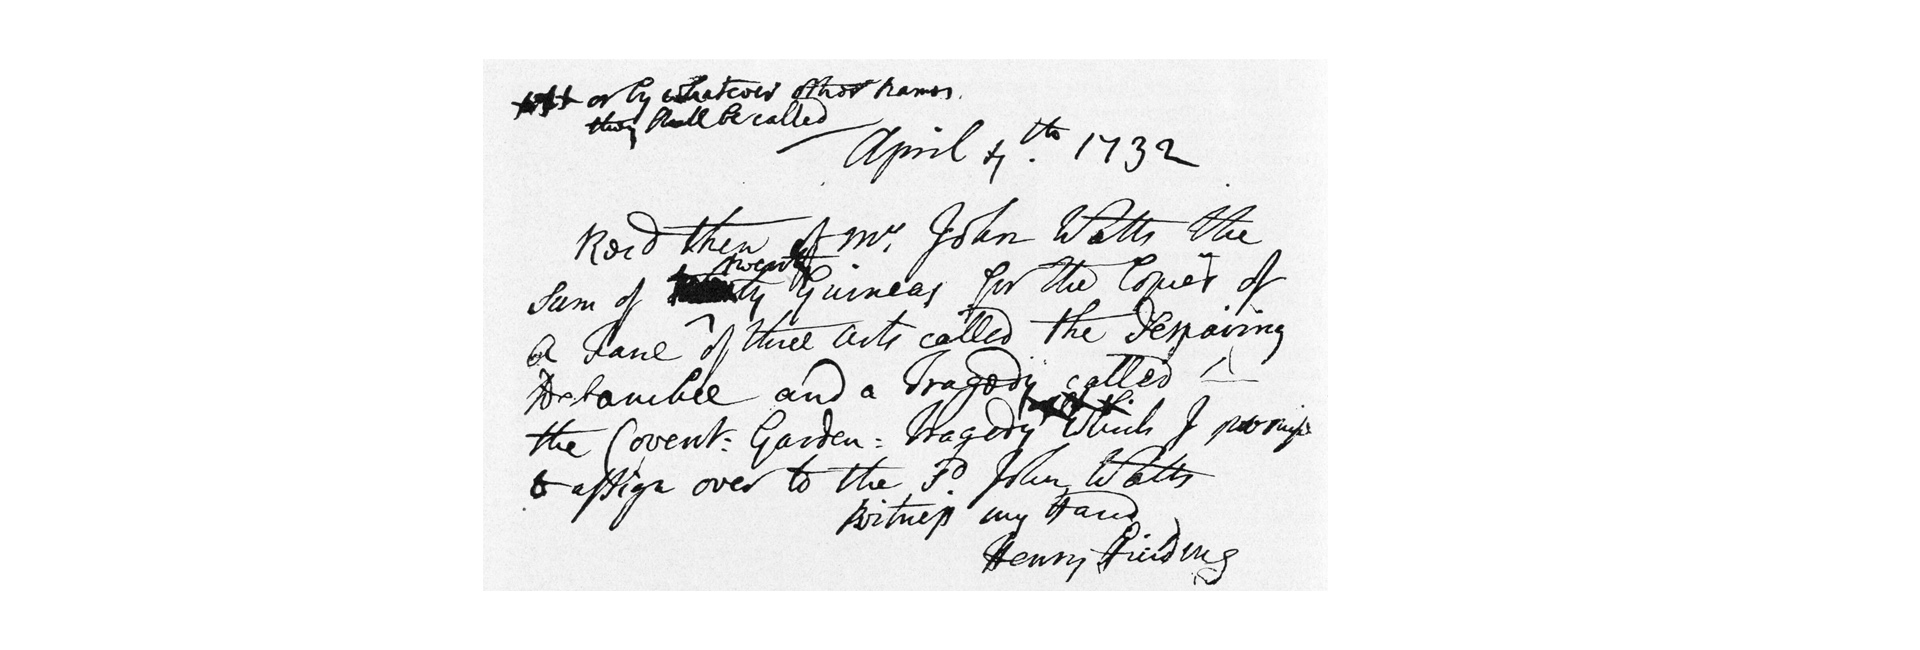 or by whatever other names
they shall be called
April 4th. 1732
Recd then of Mr. John Watts the
twenty
Sum of Guineas for the Copies of
a Farce of three Acts called the Despairing
Debauchee and a Tragedy called
the Covent=Garden=Tragedy which I promise
to assign over to the sd. John Watts
Witness my Hand
Henry Fielding